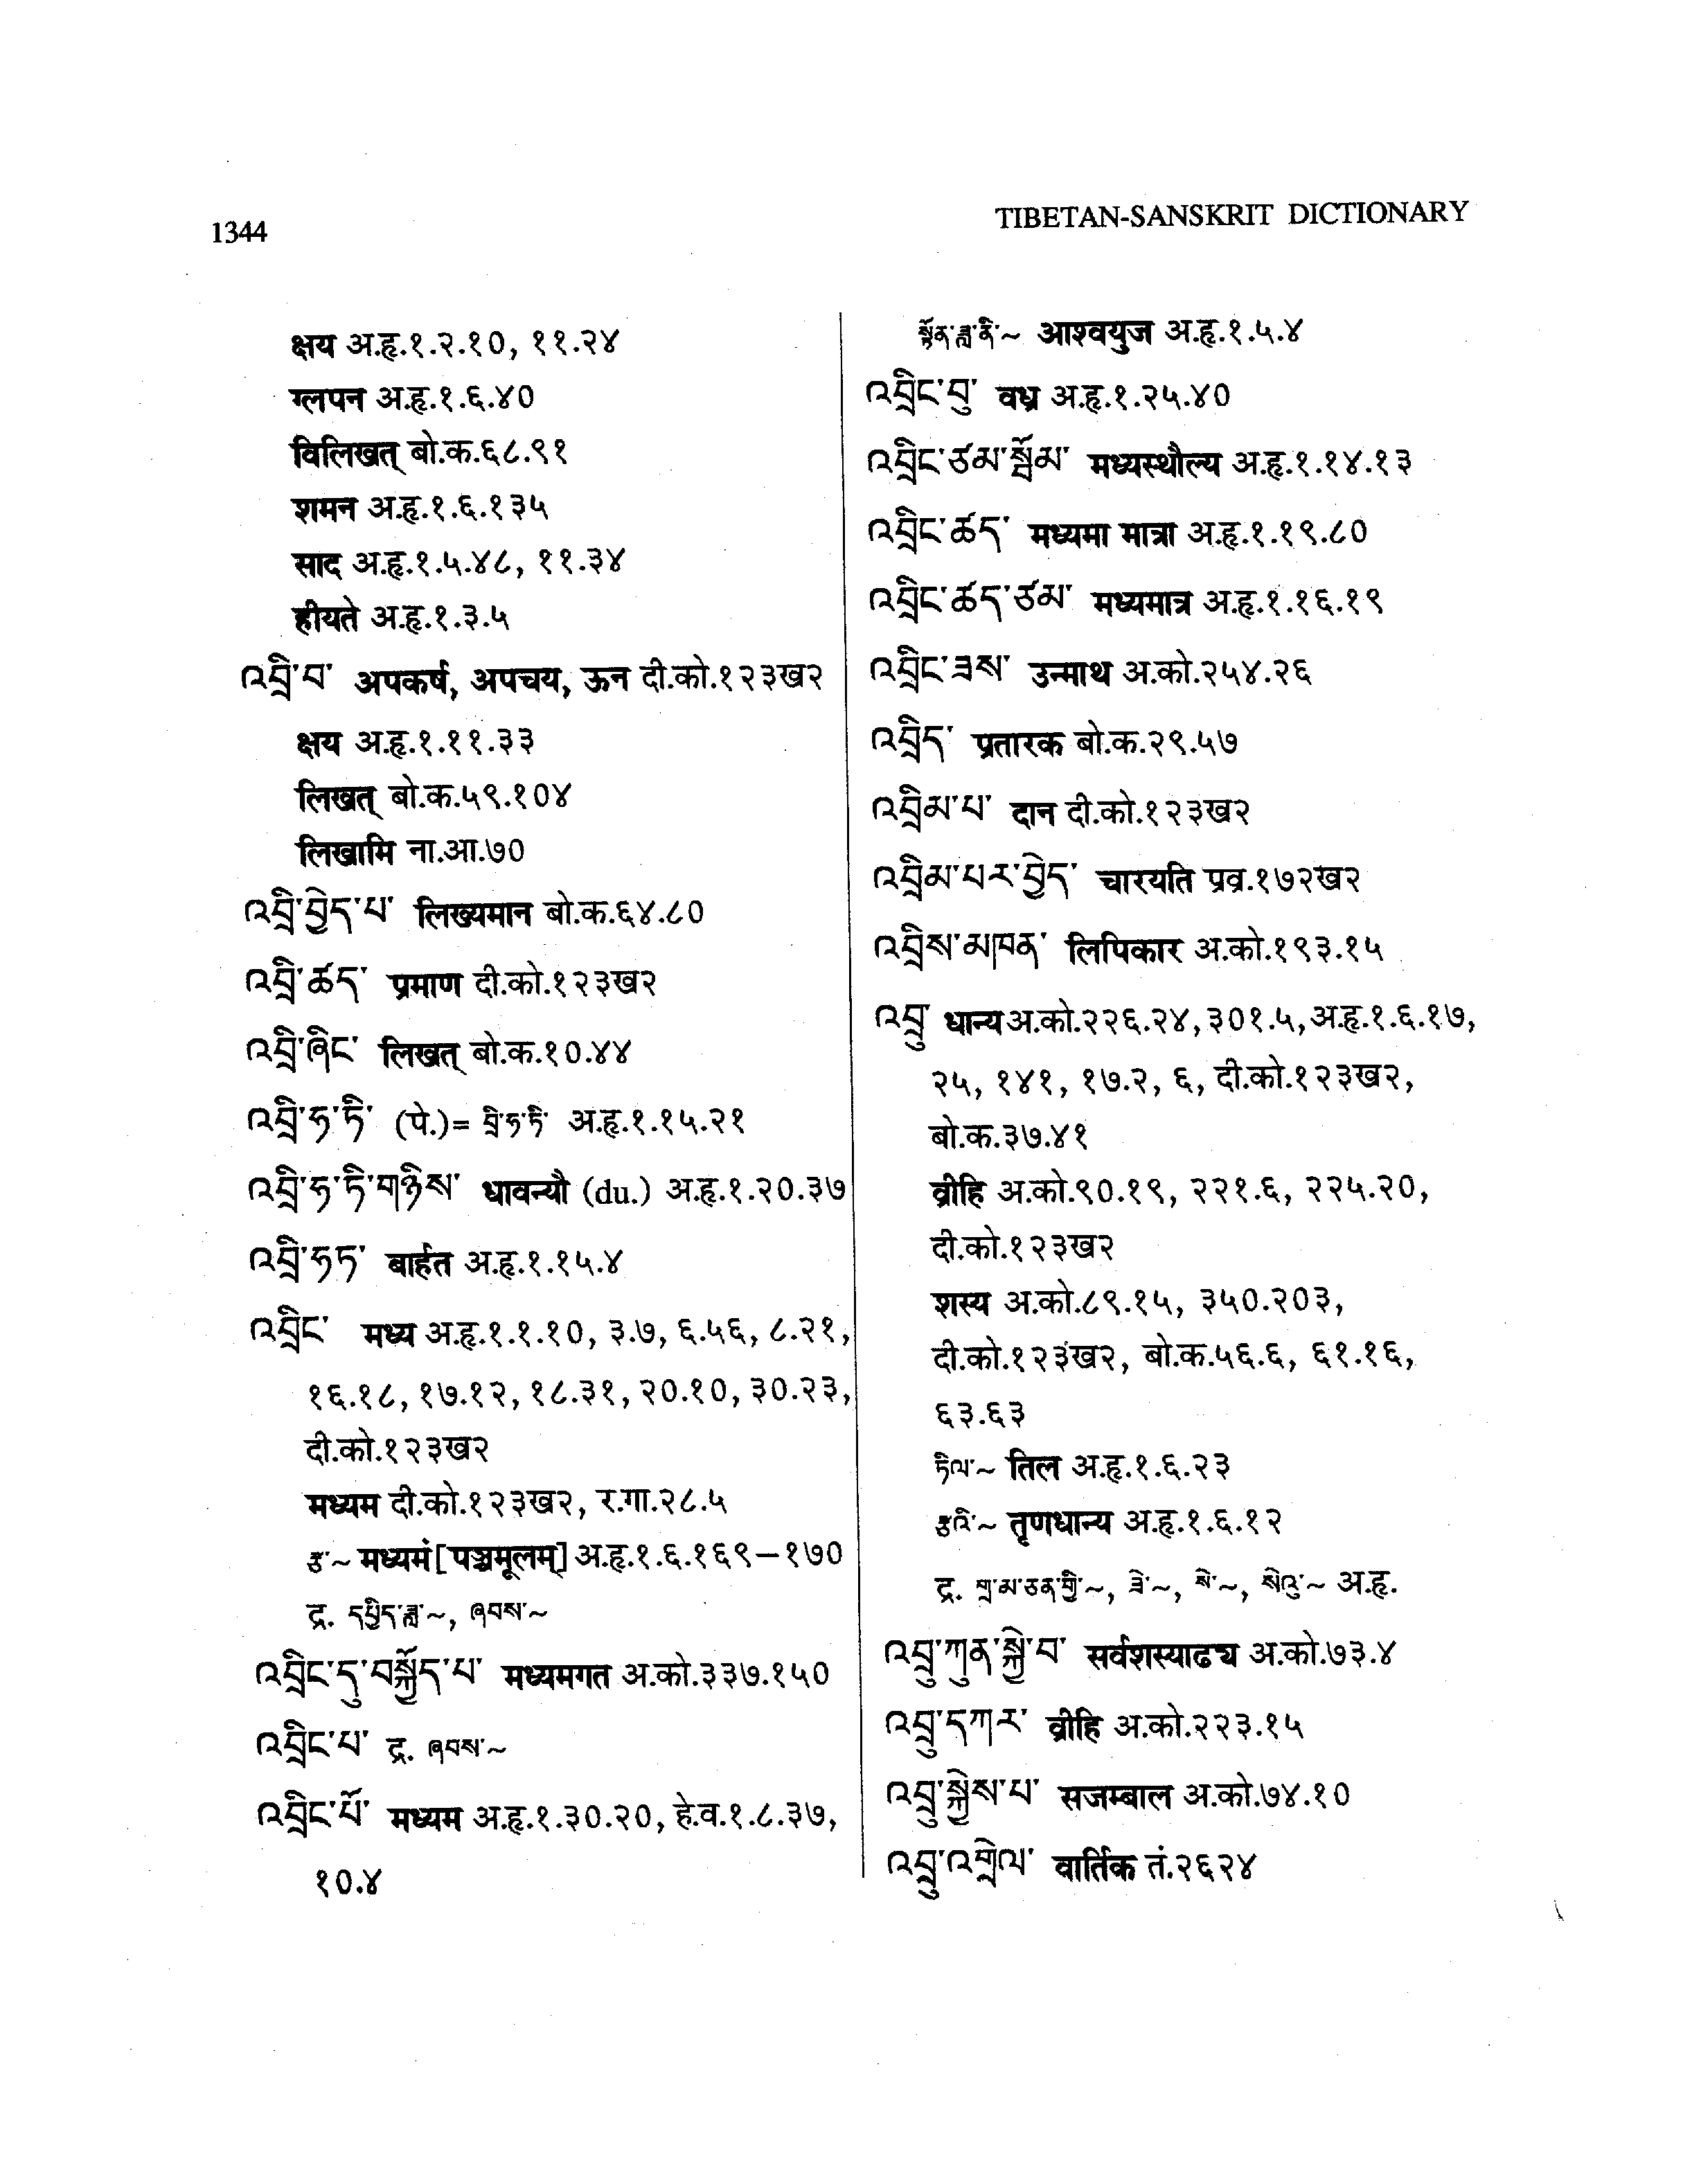 1344
TIBETAN-SANSKRIT DICTIONARY
क्षय अ.हृ.१.२.१०, ११.२४
ग्लपन अ.हृ.१.६.४०
विलिखत् बो.क.६८.९१
शमन अ.हृ.१.६.१३५
साद अ.हृ.१.५.४८, ११.३४
हीयते अ.हृ.१.३.५
འབྲི་བ་ अपकर्ष, अपचय, ऊन दी.को.१२३ख२
क्षय अ.हृ.१.११.३३
लिखत् बो.क.५९.१०४
लिखामि ना.आ.७०
འབྲི་བྱེད་པ་ लिख्यमान बो.क.६४.८०
འབྲི་ཚད་ प्रमाण दी.को.१२३ख२
འབྲི་ཞིང་ लिखत् बो.क.१०.४४
འབྲི་ཧ་ཏི་ (पे.)= བྲི་ཧ་ཏི་ अ.हृ.१.१५.२१
འབྲི་ཧ་ཏི་གཉིས་ धावन्यौ (du.) अ.हृ.१.२०.३७
འབྲི་ཧཏ་ बार्हत अ.हृ.१.१५.४
འབྲིང་ मध्य अ.हृ.१.१.१०, ३.७, ६.५६, ८.२१,
१६.१८, १७.१२, १८.३१, २०.१०, ३०.२३,
दी.को.१२३ख२
मध्यम दी.को.१२३ख२, र.गा.२८.५
རྩ་~ मध्यमं [पञ्चमूलम्] अ.हृ.१.६.१६९–१७०
द्र. དཔྱིད་ཟླ་~, ཞབས་~
འབྲིང་དུ་བསྐྱོད་པ་ मध्यमगत अ.को.३३७.१५०
འབྲིང་པ་ द्र. ཞབས་~
འབྲིང་པོ་ मध्यम अ.हृ.१.३०.२०, हे.व.१.८.३७,
१०.४
སྟོན་ཟླ་ནི་~ आश्वयुज अ.हृ.१.५.४
འབྲིང་བུ་ वध्र अ.हृ.१.२५.४०
འབྲིང་ཙམ་སྦོམ་ मध्यस्थौल्य अ.हृ.१.१४.१३
འབྲིང་ཚད་ मध्यमा मात्रा अ.हृ.१.१९.८०
འབྲིང་ཚད་ཙམ་ मध्यमात्र अ.हृ.१.१६.१९
འབྲིང་ཟས་ उन्माथ अ.को.२५४.२६
འབྲིད་ प्रतारक बो.क.२९.५७
འབྲིམ་པ་ दान दी.को.१२३ख२
འབྲིམ་པར་བྱེད་ चारयति प्रव्र.१७२ख२
འབྲིས་མཁན་ लिपिकार अ.को.१९३.१५
འབྲུ་ धान्य अ.को.२२६.२४, ३०१.५, अ.हृ.१.६.१७,
२५, १४१, १७.२, ६, दी.को.१२३ख२,
बो.क.३७.४१
व्रीहि अ.को.९०.१९, २२१.६, २२५.२०,
दी.को.१२३ख२
शस्य अ.को.८९.१५, ३५०.२०३,
दी.को.१२३ख२, बो.क.५६.६, ६१.१६,
६३.६३
ཏིལ་~ तिल अ.हृ.१.६.२३
རྩའི་~ तृणधान्य अ.हृ.१.६.१२
द्र. གྲ་མ་ཅན་གྱི་~, ཟེ་~, སེ་~, སེའུ་~ अ.हृ.
འབྲུ་ཀུན་སྐྱེ་བ་ सर्वशस्याढ्य अ.को.७३.४
འབྲུ་དཀར་ व्रीहि अ.को.२२३.१५
འབྲུ་སྐྱེས་པ་ सजम्बाल अ.को.७४.१०
འབྲུ་འགྲེལ་ वार्तिक तं.२६२४